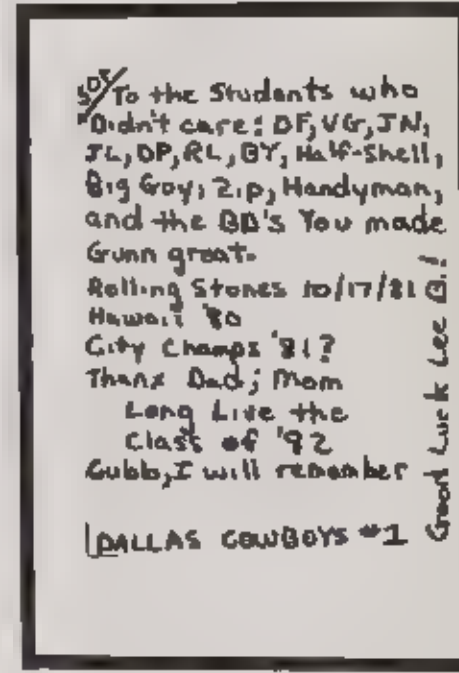 To the Students who
Didn't care: DF, VG, JN,
JL, DP, RL, BY, Half-Shell,
Big Guy, Zip, Handyman,
and the BB's You made
Gunn great.
Rolling Stones 10/17/81
Hawaii '80
City Champs '81?
Thanx Dad; Mom
Long Live the
Class of '92
Gubb, I will remember
DALLAS COWBOYS #1
Good Luck Lee B.!